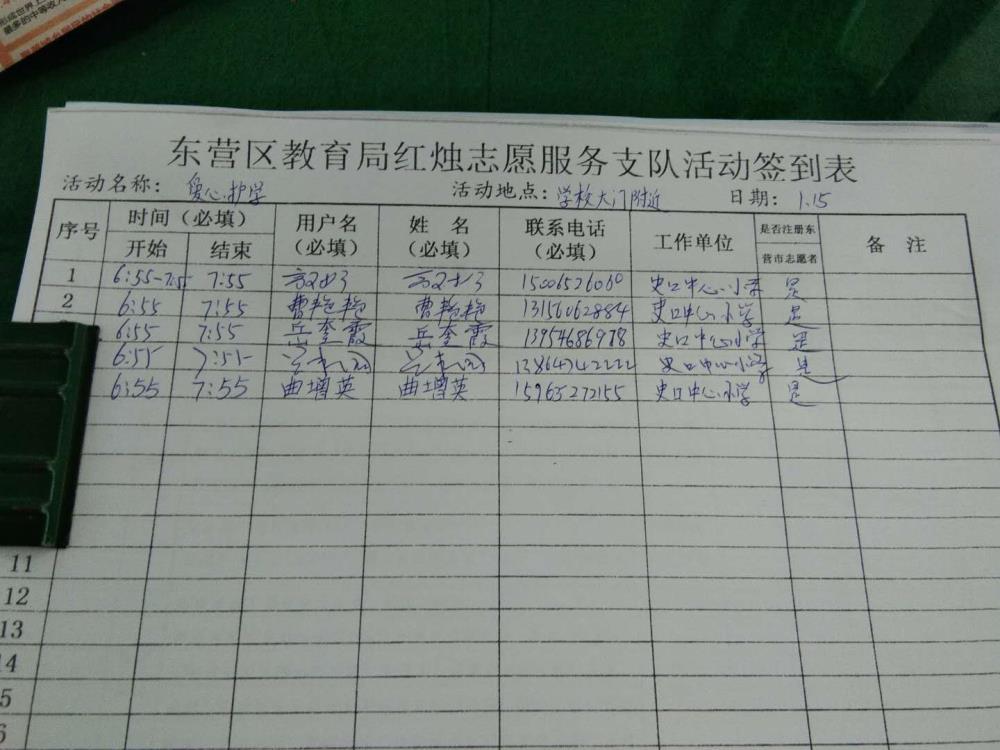 形成世界上
最多的中等收入
东营区教育局红烛志愿服务支队活动签到表
活动名称: 爱心护学 活动地点: 学校大门附近 日期: 1.15
序号 时间（必填） 用户名（必填） 姓 名（必填） 联系电话（必填） 工作单位 是否注册东营市志愿者 备 注
开始 结束
1 6:55-7:55 7:55 15001526060 史口中心小学 是
2 6:55 7:55 曹艳艳 曹艳艳 13156062884 史口中心小学 是
6:55 7:55 岳奎霞 岳奎霞 13954686978 史口中心小学 是
6:55 7:55 13864742222 史口中心小学 是
6:55 7:55 曲增英 曲增英 15965272155 史口中心小学 是
11
12
13
14
5
6